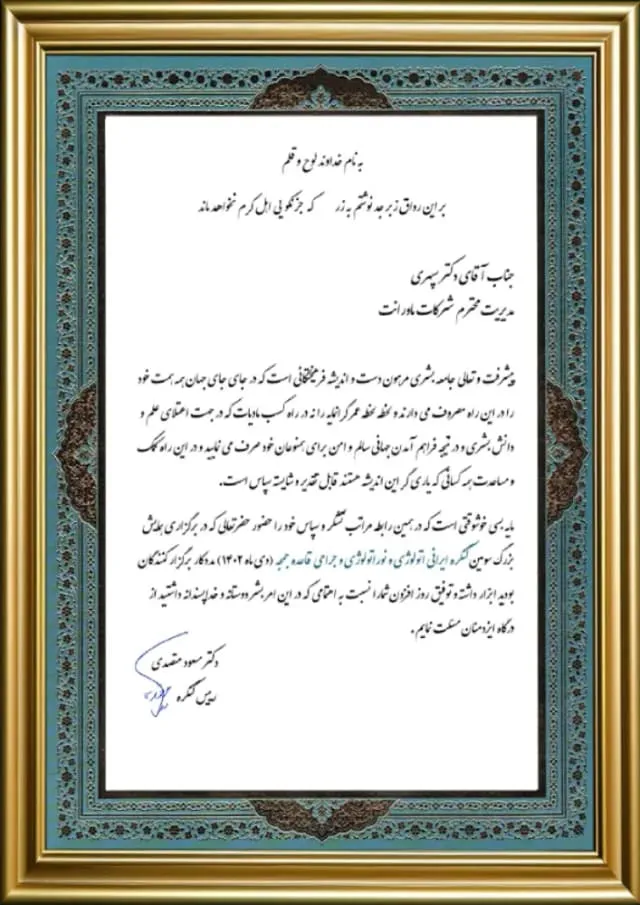 به نام خداوند لوح و قلم
بر این رواق زبرجد نوشتم به زر که جز نکویی اهل کرم نخواهد ماند
جناب آقای دکتر سپهری
مدیریت محترم شرکات مادر انت
پیشرفت و تعالی جامعه بشری مرهون دست و اندیشه فرهیختگانی است که در جای جای جهان همه همت خود
را در این راه مصروف می دارند و لحظه لحظه عمر گرانمایه را نه در راه کسب مادیات که در جهت اعتلای علم و
دانش بشری و در نتیجه فراهم آمدن جهانی سالم و امن برای همنوعان خود صرف می نمایند و در این راه کمک
و مساعدت همه کسانی که یاری گر این اندیشه هستند قابل تقدیر و شایسته سپاس است.
مایه بسی خوشوقتی است که در همین رابطه مراتب تشکر و سپاس خود را حضور حضرتعالی که در برگزاری همایش
بزرگ سومین کنگره ایرانی اتولوژی و نوراتولوژی و جراحی قاعده جمجمه (دی ماه ۱۴۰۲) مددکار برگزار کنندگان
بودید ابراز داشته و توفیق روز افزون شما را نسبت به اهتمامی که در این امر بشر دوستانه و خداپسندانه داشتید از
درگاه ایزد منان مسئلت نمایم.
دکتر مسعود متصدی
رییس کنگره